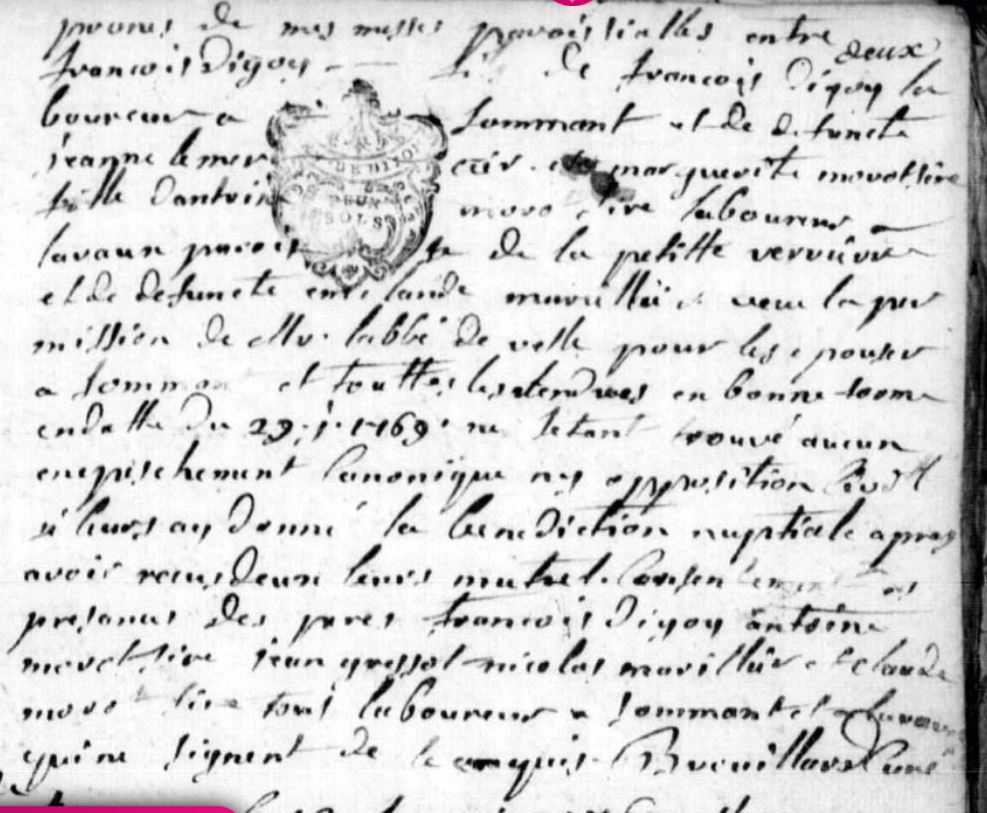 prones de mes messes paroissialles entre deux
francois Digoy fis de francois Digoy la
boureur a Sommant et de defuncte
jeanne lemer cier et marguerite morot sire
fille Dantoine moro sire laboureur a
lavaux paroisse de la petitte verriere
et de defuncte claude et veu la per
mission de labbé de velle pour les epouser
a Somman et touttes les en bonne forme
en datte du 29 j 1769 ne setant trouvé aucun
empeschement Canonique ny opposition
ay donné la benediction nuptiale apres
avoir receu deux leurs mutuel Consentement en
presences des peres francois Digoy antoine
morot sire jean nicolas et claude
morot sire tous laboureur a Sommant et a lavaux
qui ne signent de ce enquis Brouillard Curé
DE DIJON
DEUX
SOLS